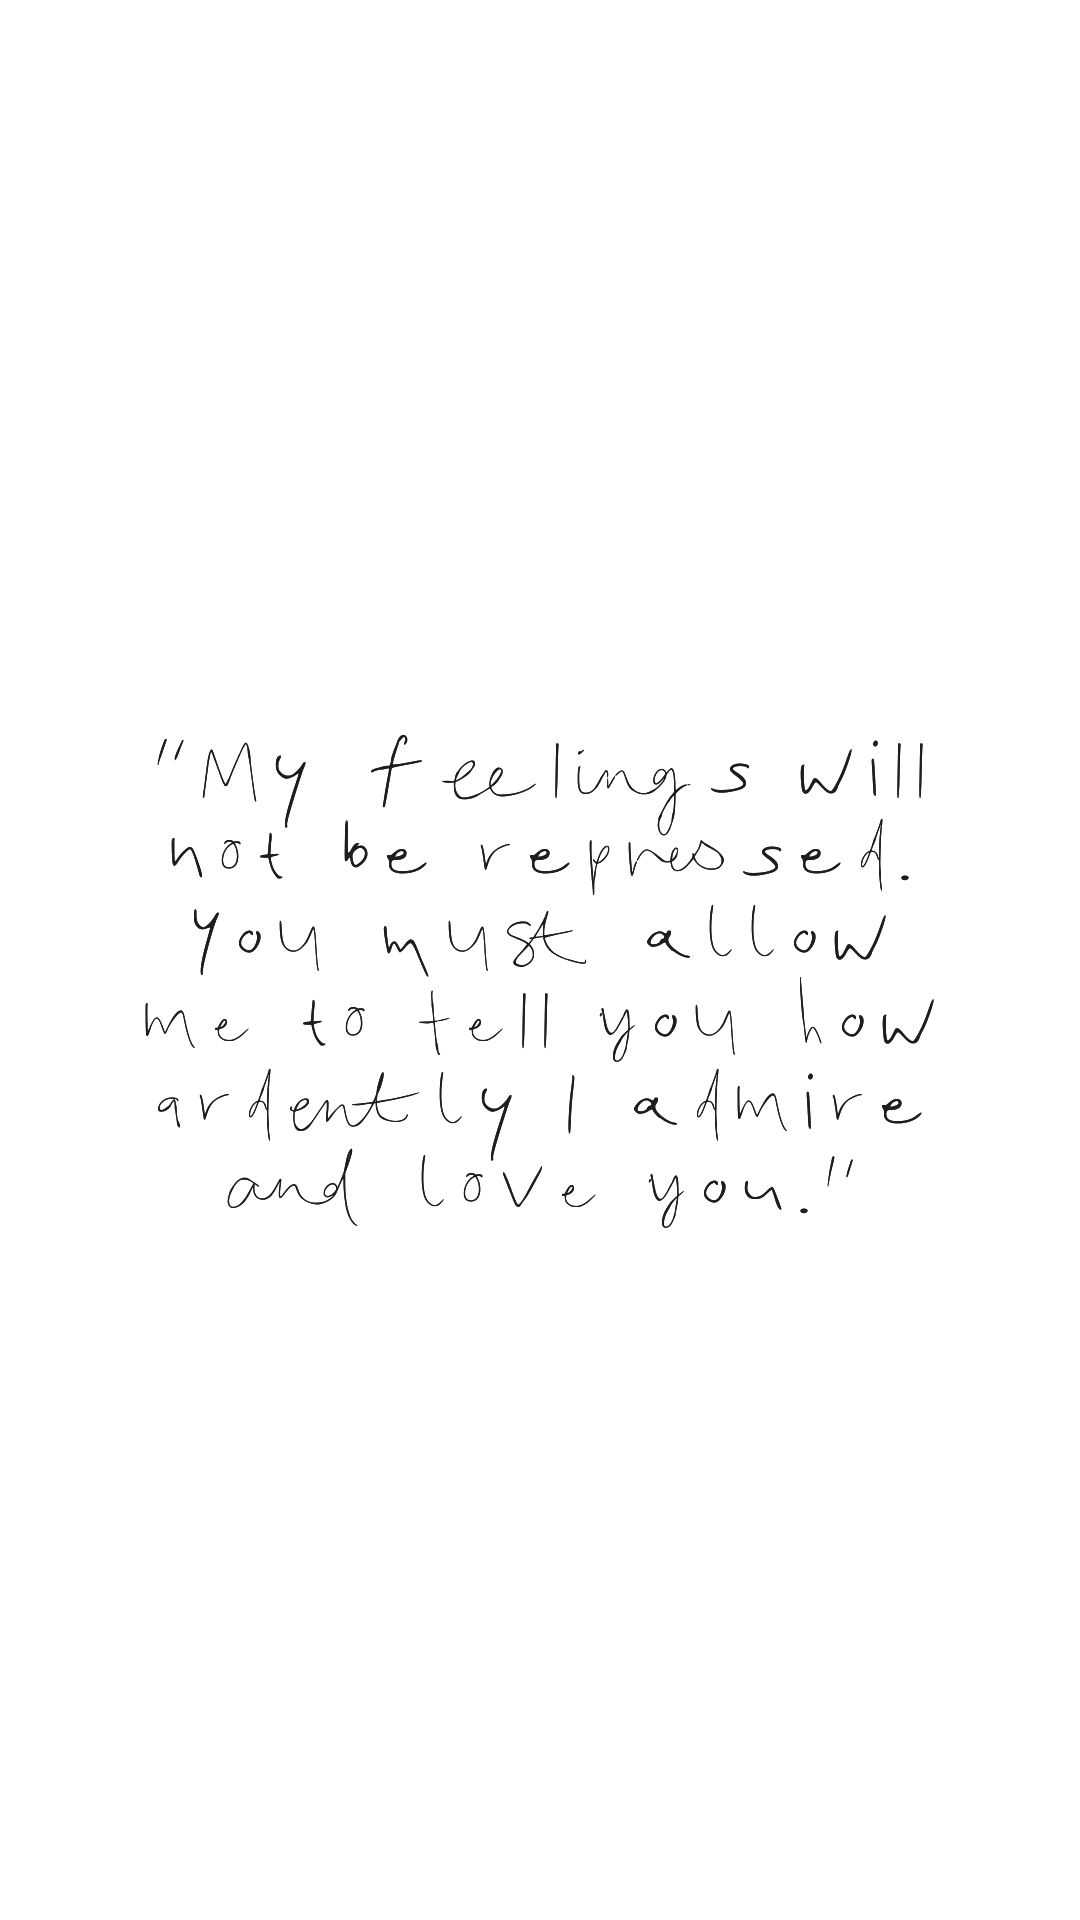 "My feelings will
not be repressed.
You must allow
me to tell you how
ardently I admire
and love you."